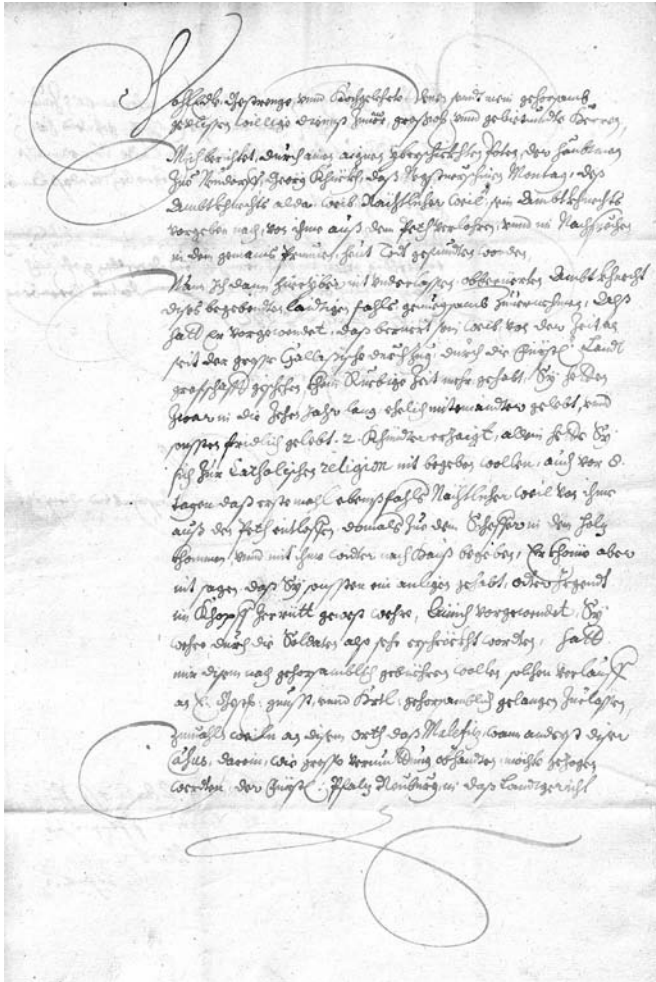 Wohledle Gestrenge, unnd Hochgelehrte, denen seindt mein gehorsamb
geflissen willige dienst Zuvor, großgl: unnd gebietende Herren,
Mich berichtet, durch ainen aignen yberschickhten poten, der Haubtman
Zue, Georg, daß negstverschinen Montag, deß
Ambtkhnechts alda weib, Nächtlicher weil, sein Ambtkhnechts
vorgeben nach, von ihme auß dem Peth verlohren, unnd in Nachsuechen
in dem gemains Prunnen, heut Todt gefundten worden,
Nun Ich dann hierüber nit underlassen, obbemelten Ambtkhnecht
dises begebendten laidtigen fahls genuegsamb Zuvernehmen, Alß
hatt Er vorgewendet, daß bemelt sein weib, von der Zeit an
seit der grosse Gallassische durchzug, durch die Fürstl: Landt
graffschafft geschehen, khein Ruebige Zeit mehr gehabt, Sy hetten
zwar in die Zehen Jahr lang, ehelich miteinander gelebt, unnd
sonsten fridlich gelebt, 2. Khinder erzaigt, allein hette Sy
sich Zur Catholischen religion nit begeben wollen, auch vor 8.
tagen daß erste mahl ebensfahls Nächtlicher weil von ihme
auß dem Peth entloffen, domals Zue dem Scheffer in dem holz
khommen, unnd mit ihme wider nach Hauß begeben, Er khönne aber
nit sagen, daß Sy sonsten ein anligen gehabt, oder Irgendt
im Khopff Zerrütt gewest wehre, vorgewendet, Sy
wehre durch die Soldaten also sehr erschreckht worden, hatt
mir disem nach gehorsamblich gebühren wollen, solchen verlauff
an E: Gestr: gunst, unnd Hrl: gehorsamblich gelangen Zuelassen,
Zumahls weiln an disem orth daß Malefiz, wann anderst diser
Casus, darein, wie grosse vermuettung obhanden, möchte gezogen
werdten, der Fürstl: Pfalz Neuburg, in daß Landtgericht